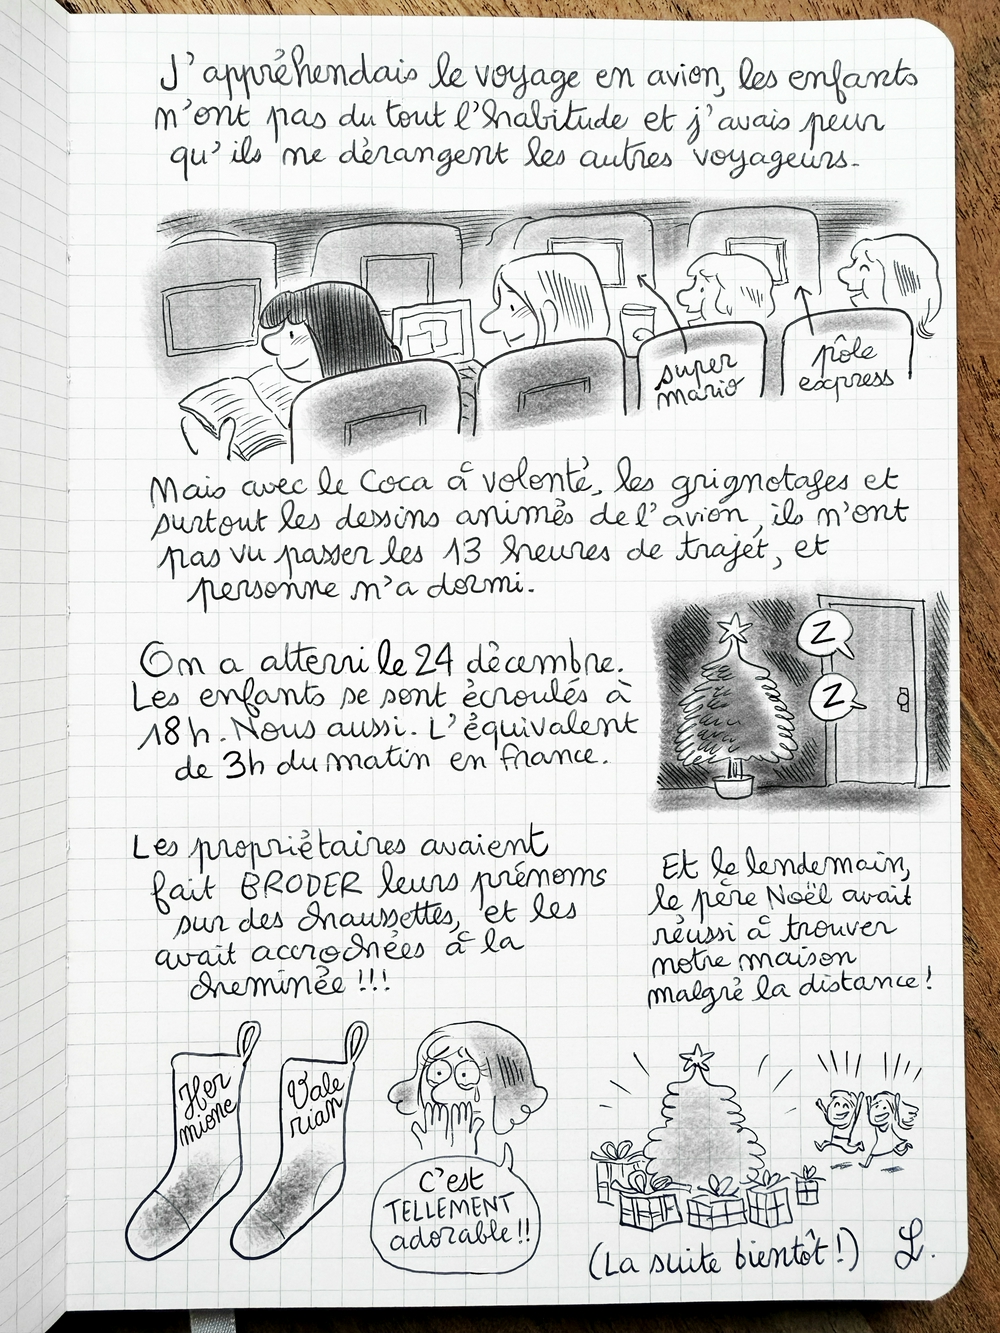 J'appréhendais le voyage en avion, les enfants
n'ont pas du tout l'habitude et j'avais peur
qu'ils ne dérangent les autres voyageurs.
super
mario
pôle
express
Mais avec le Coca à volonté, les grignotages et
surtout les dessins animés de l'avion, ils n'ont
pas vu passer les 13 heures de trajet, et
personne n'a dormi.
On a atterri le 24 décembre.
Les enfants se sont écroulés à
18h. Nous aussi. L'équivalent
de 3h du matin en France.
Z
Z
Les propriétaires avaient
fait BRODER leurs prénoms
sur des chaussettes, et les
avait accrochées à la
cheminée !!!
Et le lendemain,
le père Noël avait
réussi à trouver
notre maison
malgré la distance !
Her
mione
Vale
rian
C'est
TELLEMENT
adorable !!
(La suite bientôt !)
L.